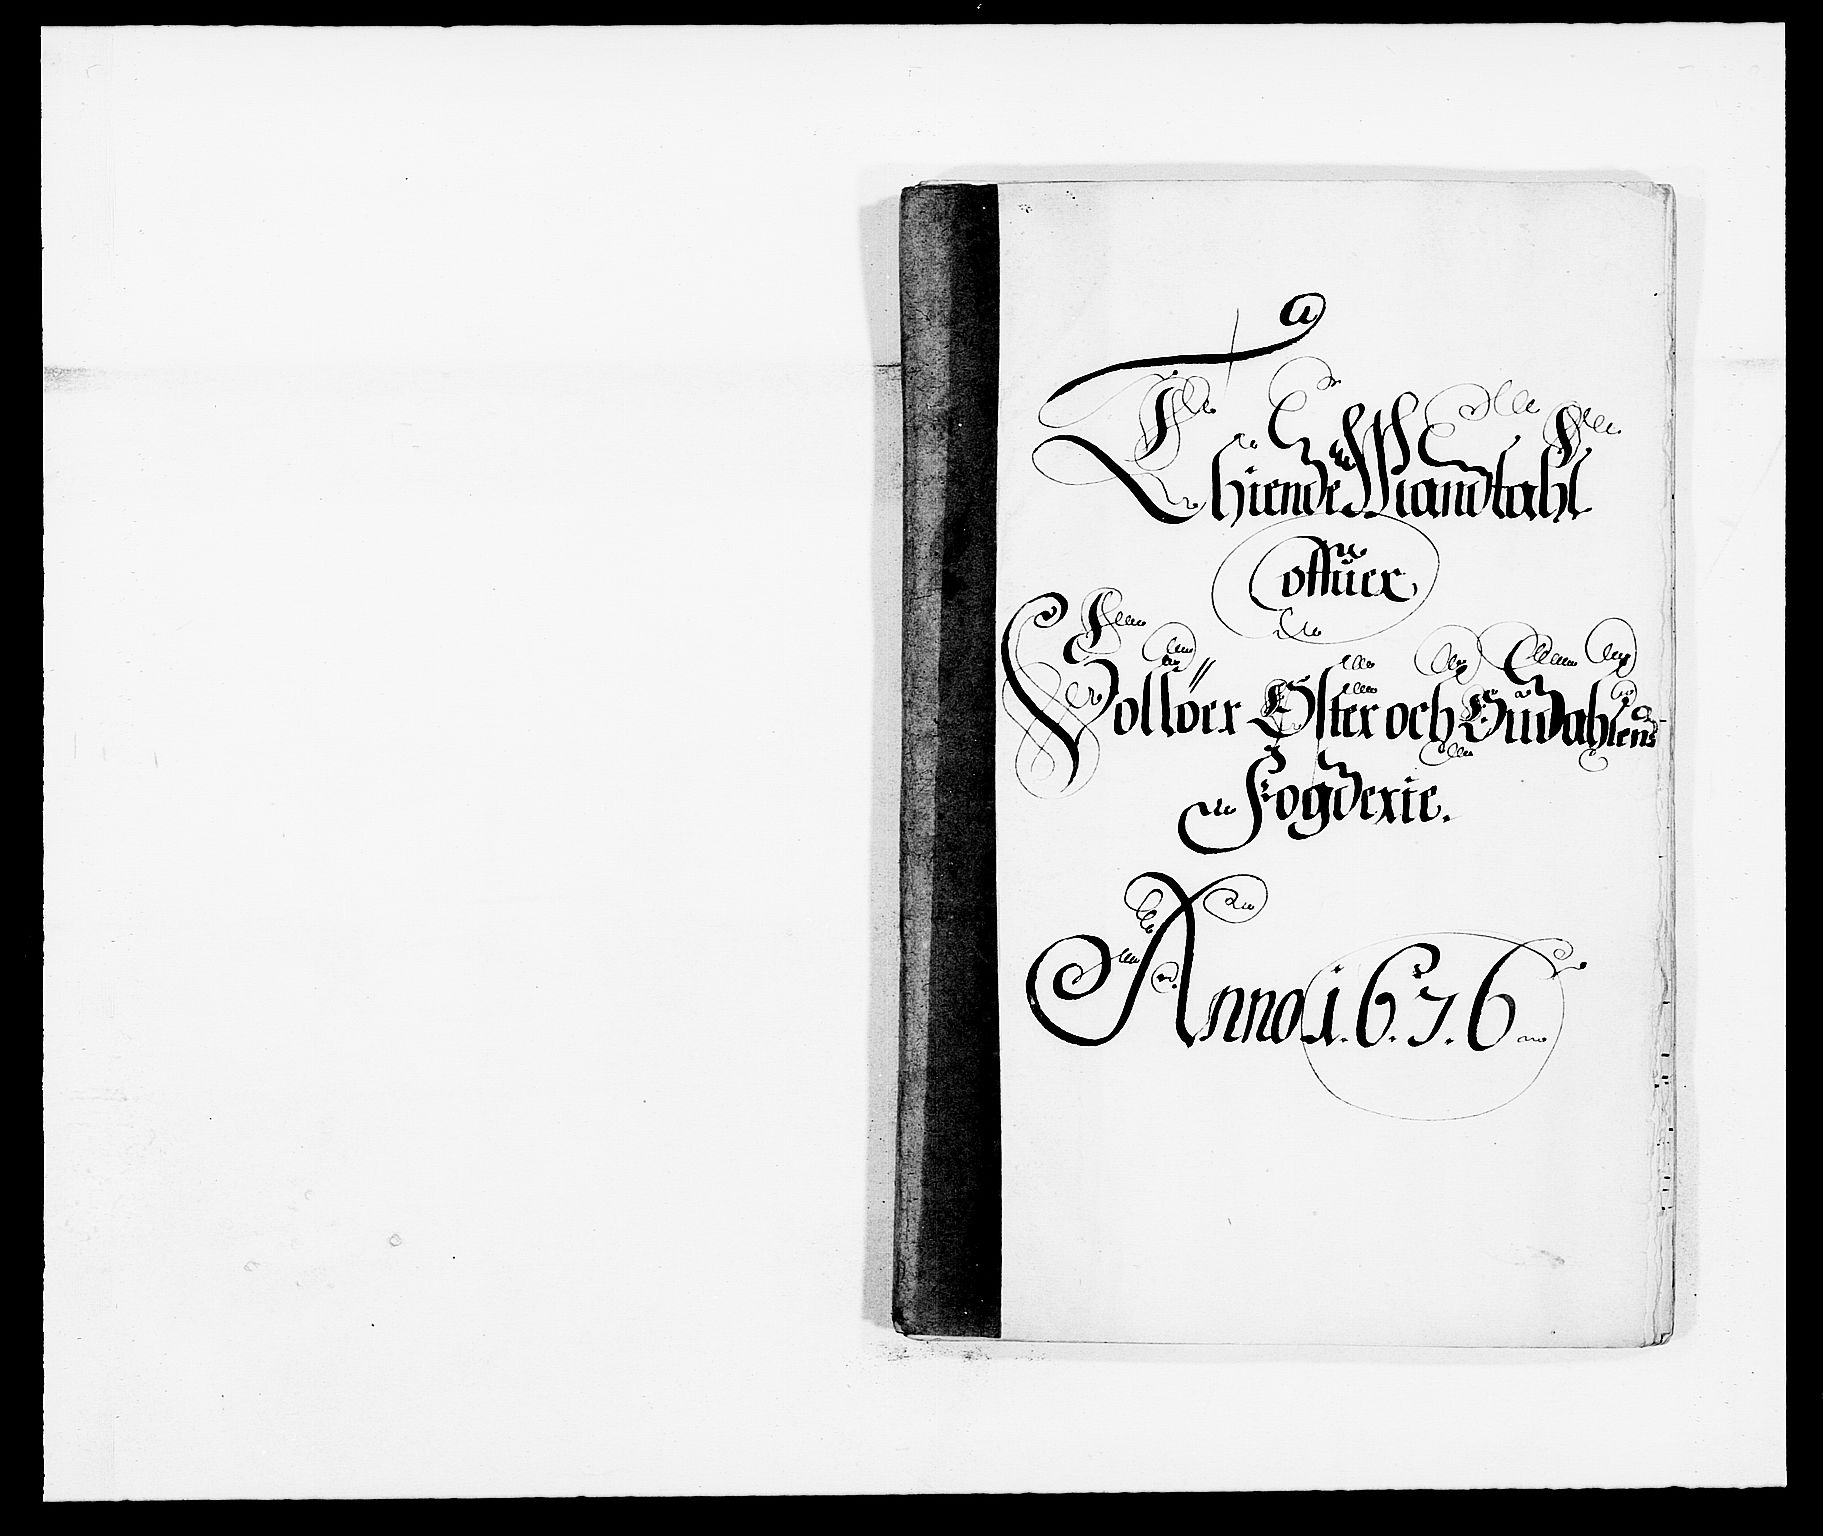 Thiende Mandtahl
offuer
Solløer Øster och Øudahlens
Fogderie.
Anno 1.6.7.6